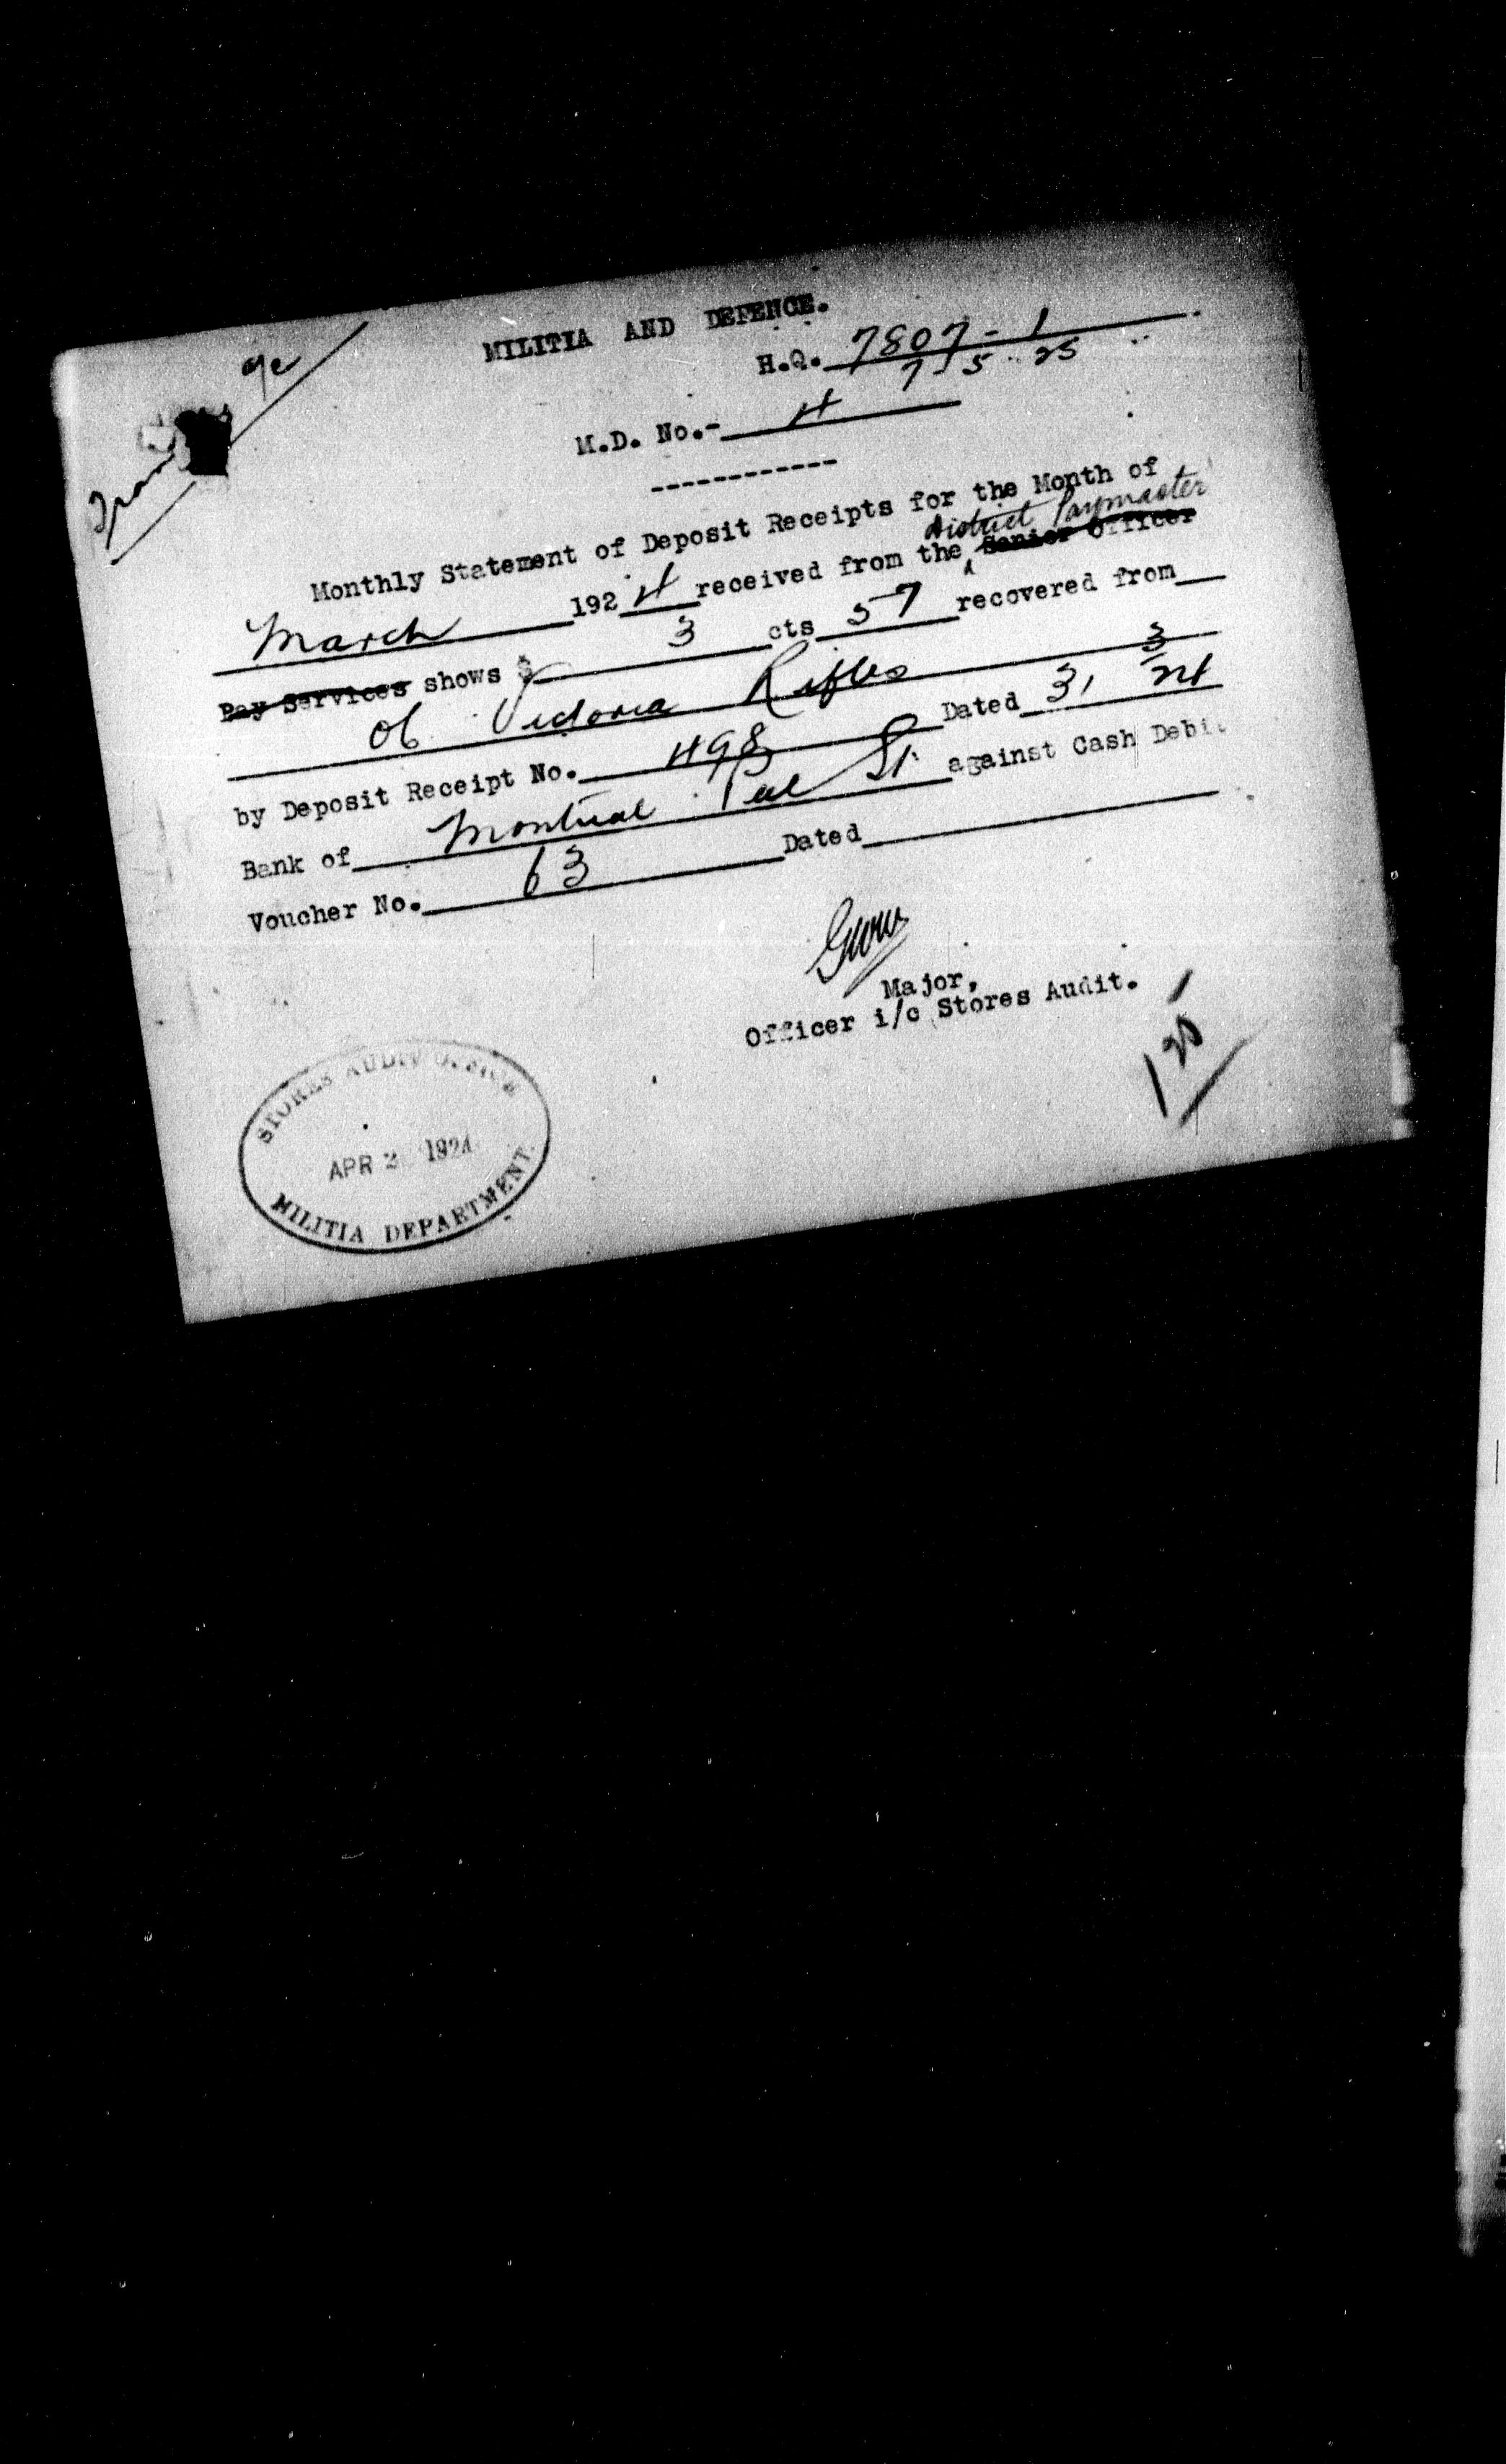 MILITIA AND DEFENCE.
H.Q. 7807-1
7-5-25
M.D. No.- 4
------------
Monthly Statement of Deposit Receipts for the Month of
District Paymaster
March 1924 received from the Senior Officer
Pay Services shows $ 3 cts 57 recovered from
of Victoria Rifles
by Deposit Receipt No. 498 Dated 31/3/24
Bank of Montreal Peel St. against Cash Debit
Voucher No. 63 Dated
Major,
Officer i/c Stores Audit.
125
STORES AUDIT OFFICE
APR 2 1924
MILITIA DEPARTMENT.